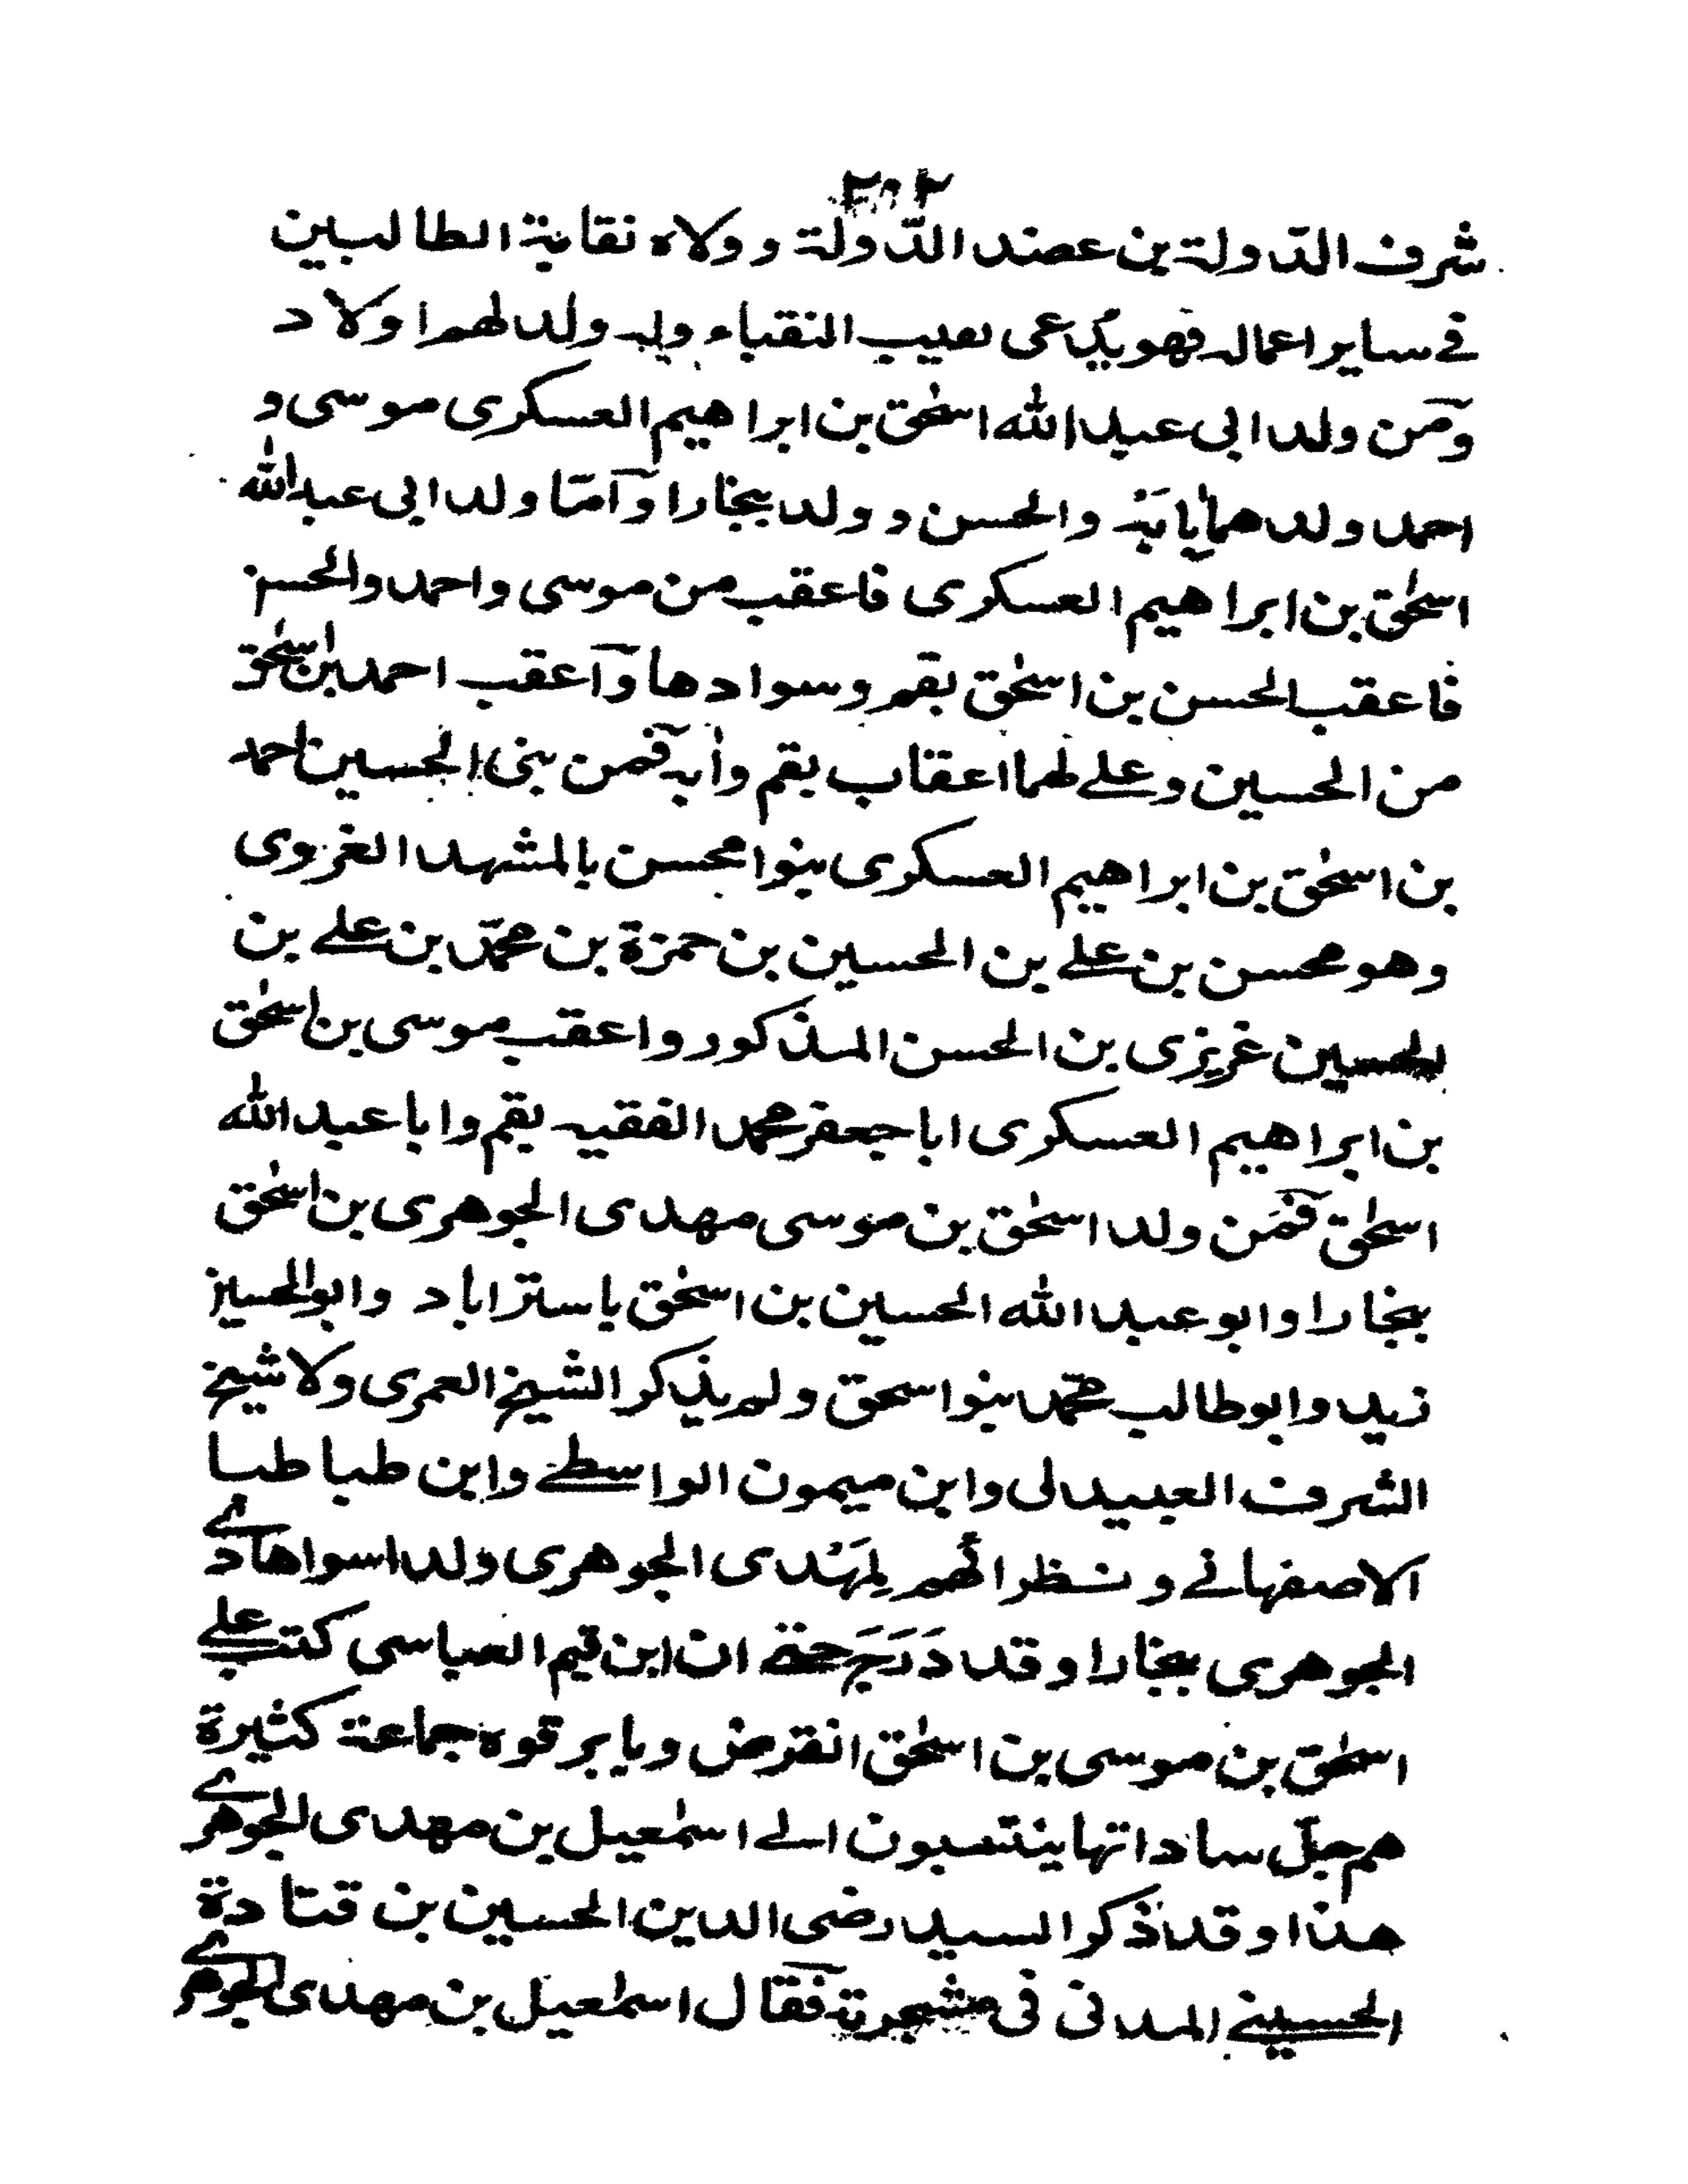 ٢٠٢
شرف الدّولة بن عضد الدّولة وولاه نقابة الطالبين
في ساير اعماله فهو يدعى نقيب النقباء وله ولد لهم اولاد
ومن ولد ابى عبد الله اسحٰق بن ابراهيم العسكرى موسى و
احمد ولدهما بابَة والحسن وولد ببخارا وامّا ولد ابى عبد الله
اسحٰق بن ابراهيم العسكرى فاعقب من موسى واحمد والحسن
فاعقب الحسن بن اسحٰق بقم وسوادها واعقب احمد بن اسحٰق
من الحسين وعلي لهما اعقاب بقم وابه فمن بنى الحسين احمد
بن اسحٰق بن ابراهيم العسكرى بنوا محسن بالمشهد الغروى
وهو محسن بن علي بن الحسين بن حمزة بن محمّد بن علي بن
الحسين عزيزى بن الحسن المذكور واعقب موسى بن اسحٰق
بن ابراهيم العسكرى ابا جعفر محمد الفقيه بقم وابا عبد الله
اسحٰق فمَن ولد اسحٰق بن موسى مهدى الجوهرى بن اسحٰق
بخارا وابو عبد الله الحسين بن اسحٰق باستراباد وابو الحسين
زيد وابو طالب محمّد بنوا سحق ولم يذكر الشيخ العمرى ولا شيخ
الشرف العبيدلى وابن ميمون الواسطي وابن طبا طبا
الاصفهاني ونظرائهم لِمَهْدى الجوهرى ولدا سوا هادي
الجوهرى ببخارا وقد دَرَجَ حتى ان ابن قيم العباسى كتب علي
اسحٰق بن موسى بن اسحٰق انقرض وبابرقوه جماعة كثيرة
هم جلّ ساداتها ينتسبون الي اسمٰعيل بن مهدى الجوهري
هذا وقد ذكر السيد رضى الدين الحسين بن قتادة
الحسيني المدنى فى مشجرته فقال اسمٰعيل بن مهدى الجوهري